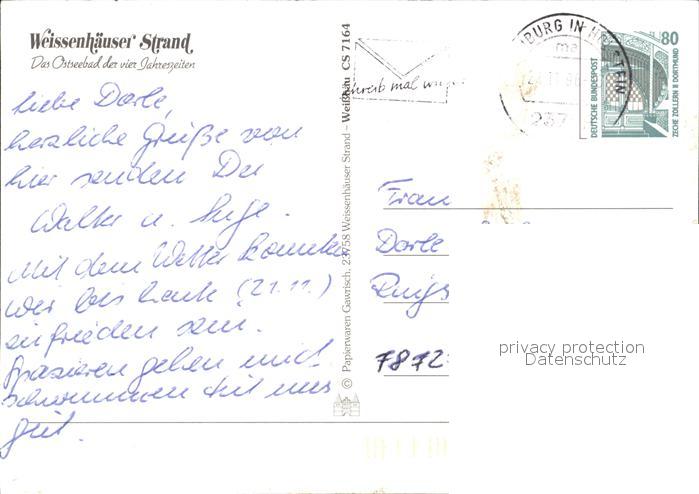 Weissenhäuser Strand
Das Ostseebad der vier Jahreszeiten
liebe Dorle,
herzliche Grüße von
hier senden Dir
Walter u. Inge.
Mit dem Wetter konnten
wir bis heute (21.11.)
zufrieden sein.
Spazieren gehen und
schwimmen tut uns
gut.
© Papierwaren Gawrisch, 23758 Weissenhäuser Strand – Weißbau CS 7164
Schreib mal wieder
BURG IN HOLSTEIN
237
80
DEUTSCHE BUNDESPOST
ZECHE ZOLLERN II DORTMUND
Frau
Dorle
7872
privacy protection
Datenschutz